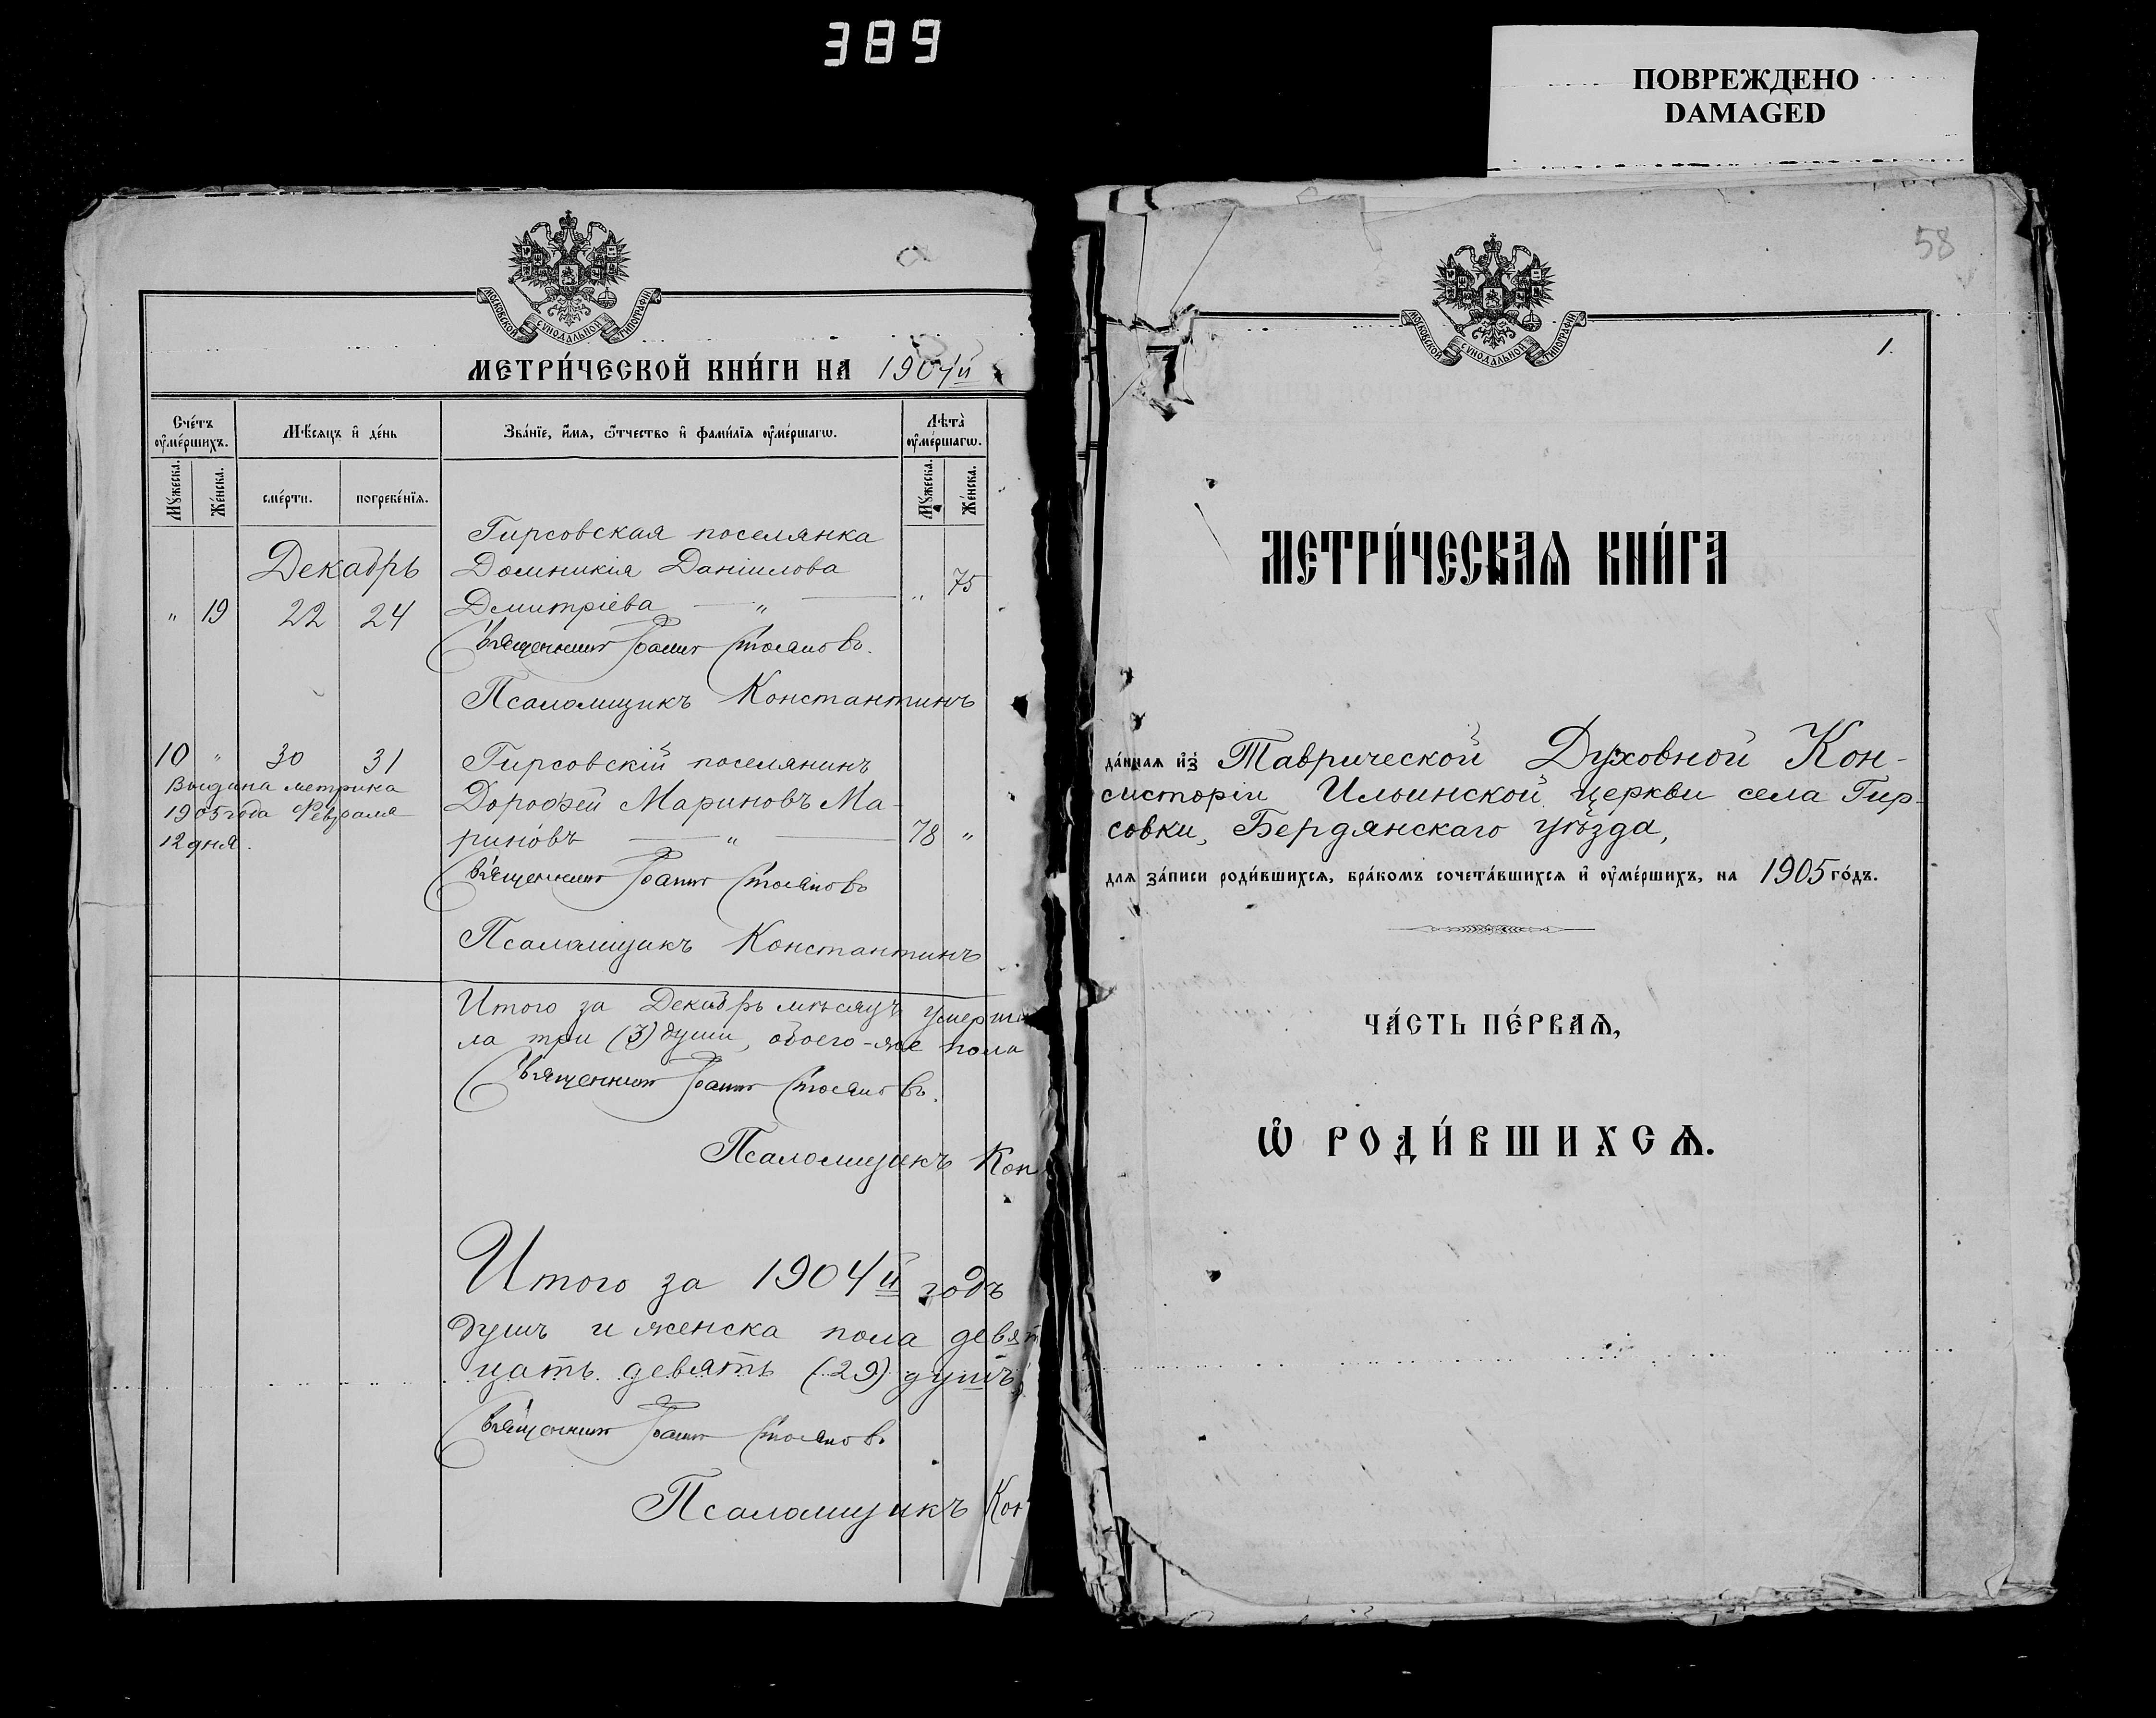 389
ПОВРЕЖДЕНО
DAMAGED
МОСКОВСКОЙ СѴНОДАЛЬНОЙ ТИПОГРАФІИ
МЕТРИ́ЧЕСКОЙ КНИ́ГИ НА 1904й
Сче́тъ ᲂу҆ме́ршихъ.
Мѣ́сяцъ и҆ де́нь
Зва́нїе, и҆́мя, ѻ҆́тчество и҆ фами́лїя ᲂу҆ме́ршагѡ.
Лѣта̀ ᲂу҆ме́ршагѡ.
Мꙋ́жеска.
Же́нска.
сме́рти.
погребе́нїя.
Мꙋ́жеска.
Же́нска.
Гирсовская поселянка
Декабрь
Домникія Даніилова
" 19 22 24 Дмитріева — " — " 75
Священникъ Іоаннъ Стояновъ.
Псаломщикъ Константинъ
10 " 30 31 Гирсовскій поселянинъ
Выдана метрика
1905 года Февраля
12 дня.
Дорофей Мариновъ Ма-
риновъ — " — 78 "
Священникъ Іоаннъ Стояновъ
Псаломщикъ Константинъ
Итого за Декабрь мѣсяцъ умерш
ла три (3) души, обоего-же пола
Священникъ Іоаннъ Стояновъ.
Псаломщикъ Кон
Итого за 1904й годъ
душъ и женска пола девят
цать девять (29) душъ,
Священникъ Іоаннъ Стояновъ
Псаломщикъ Кон
58
МОСКОВСКОЙ СѴНОДАЛЬНОЙ ТИПОГРАФІИ
1.
МЕТРИ́ЧЕСКАѦ КНИ́ГА
да́нная и҆з̾ Таврической Духовной Кон-
систоріи Ильинской церкви села Гир-
совки, Бердянскаго уѣзда,
для за́писи роди́вшихся, бра́комъ сочета́вшихся и҆ ᲂу҆ме́ршихъ, на 1905 го́дъ.
ЧА́СТЬ ПЕ́РВАѦ,
Ѽ РОДИ́ВШИХСѦ.